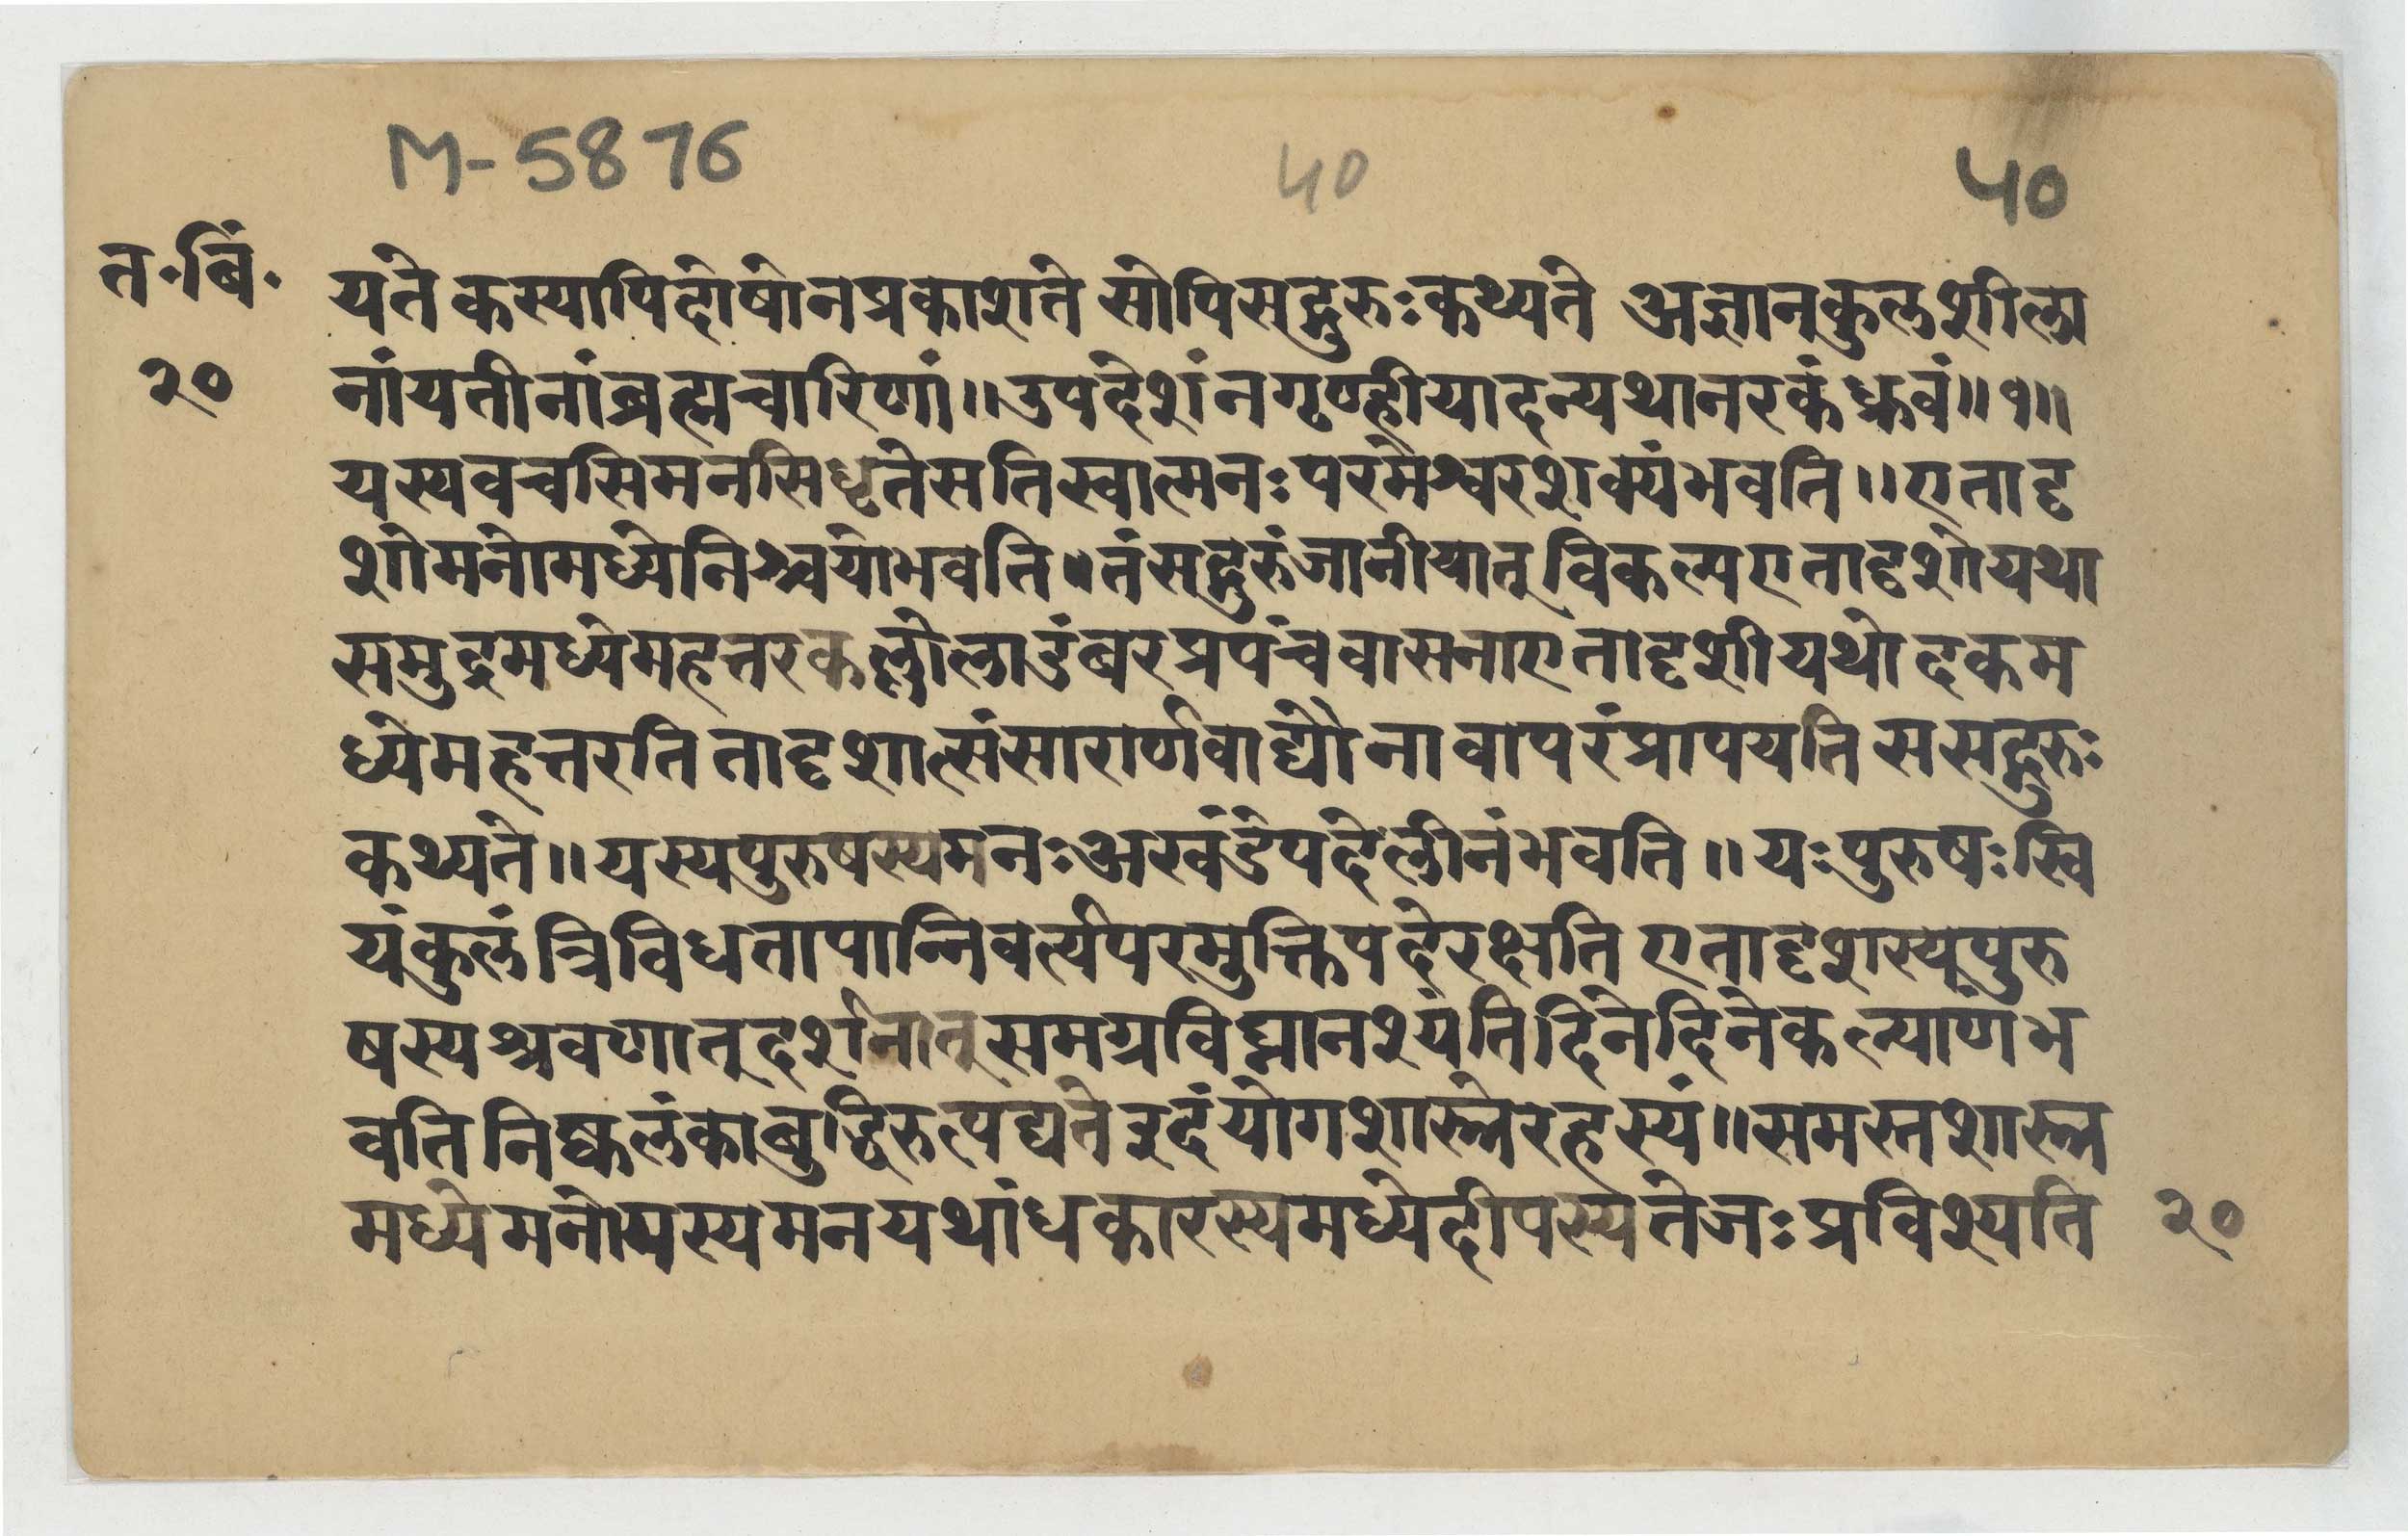 M-5876 40 40
त॰बिं॰ यते कस्यापिदोषोनप्रकाशते सोपिसद्गुरुःकथ्यते अज्ञानकुलशीला
२० नांयतीनांब्रह्मचारिणां॥उपदेशंनगृण्हीयादन्यथानरकंध्रुवं॥१॥
यस्यवचसिमनसिधृतेसतिस्वात्मनःपरमेश्वरशक्यंभवति॥एतादृ
शोमनोमध्येनिश्चयोभवति॥तंसद्गुरुंजानीयात् विकल्पएतादृशोयथा
समुद्रमध्येमहत्तरकल्लोलाडंबरप्रपंचवासनाएतादृशीयथोदकम
ध्येमहत्तरति तादृशात्संसारार्णवाद्यौ नावापरंप्रापयति ससद्गुरुः
कथ्यते॥यस्यपुरुषस्यमनःअखंडेपदेलीनंभवति॥यःपुरुषःस्वि
यंकुलं त्रिविधतापान्निवर्त्यपरमुक्तिपदेरक्षति एतादृशस्यपुरु
षस्यश्रवणात्दर्शनात् समग्रविघ्नानश्यंति दिनेदिनेकल्याणंभ
वति निष्कलंकाबुद्धिरुत्पद्यते इदंयोगशास्त्रेरहस्यं॥समस्तशास्त्र
मध्येमनोयस्यमनयथांधकारस्यमध्येदीपस्यतेजःप्रविश्यति २०